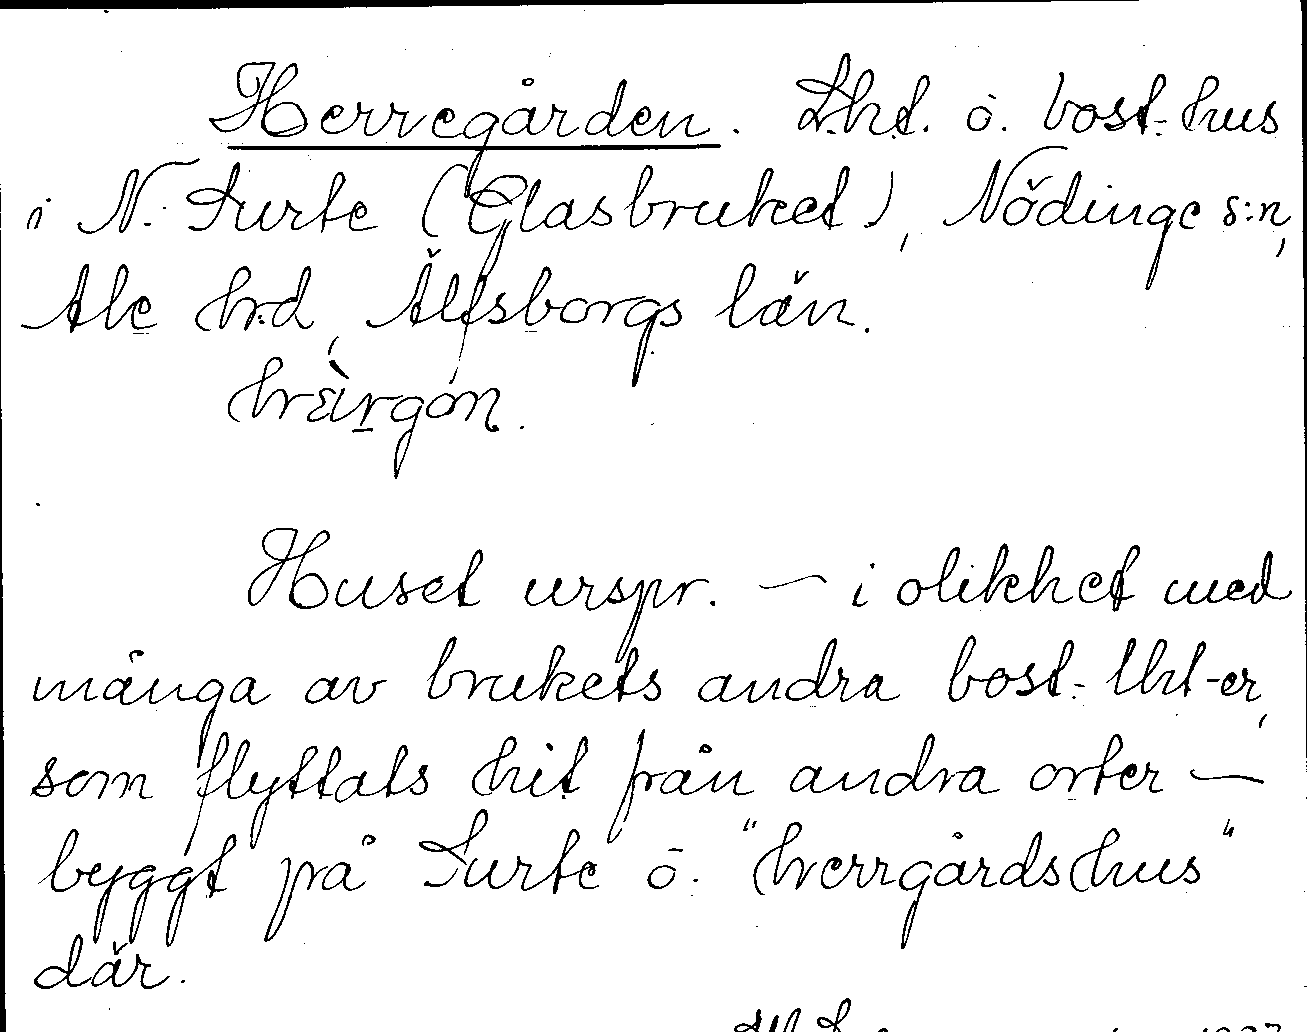 Herregården. Lht. o. bost.-hus
i N. Surte (Glasbruket), Nödinge s:n,
Ale hd, Älfsborgs län.
hærgon.
Huset urspr. — i olikhet med
många av brukets andra bost.-lht-er,
som flyttats hit från andra orter —
byggt på Surte o. "herrgårdshus"
där.